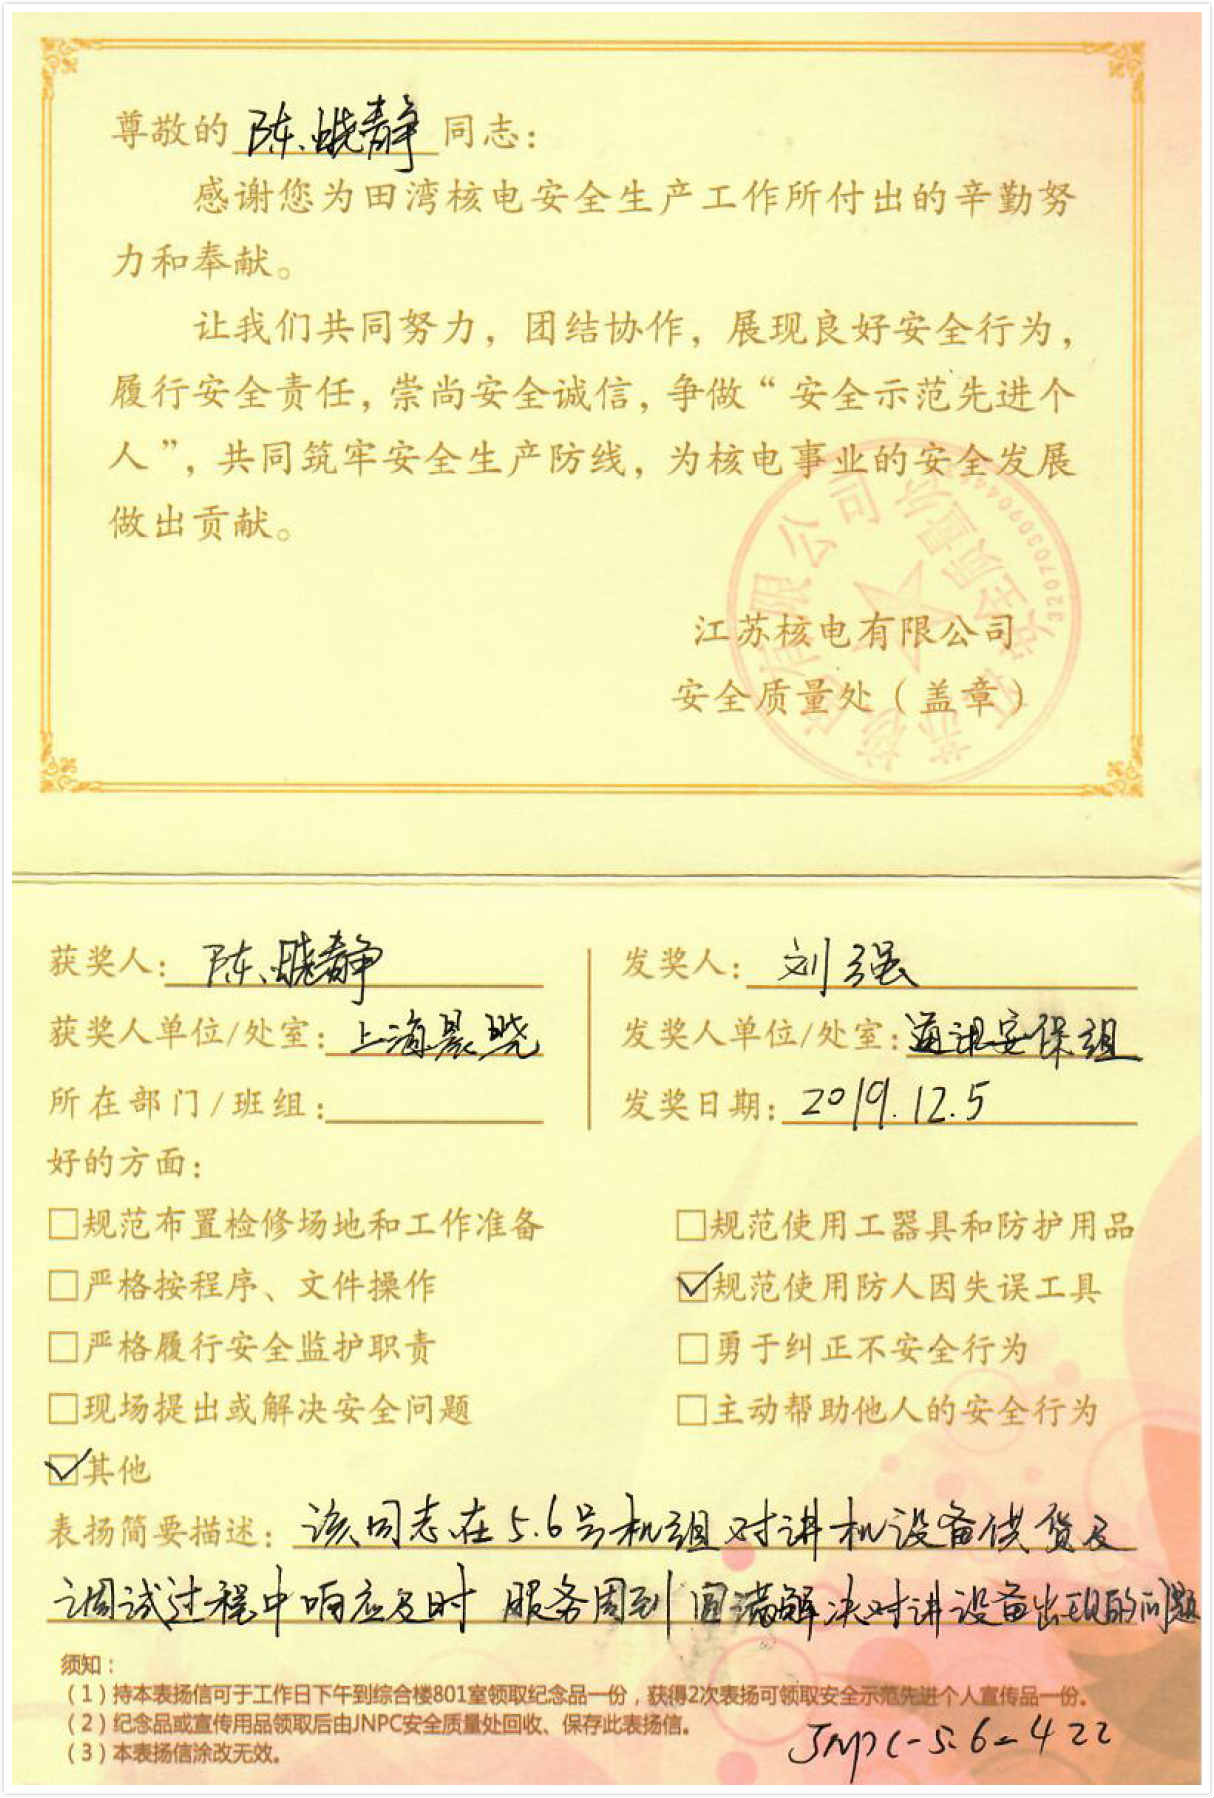 尊敬的 陈晓静 同志：
感谢您为田湾核电安全生产工作所付出的辛勤努
力和奉献。
让我们共同努力，团结协作，展现良好安全行为，
履行安全责任，崇尚安全诚信，争做“安全示范先进个
人”，共同筑牢安全生产防线，为核电事业的安全发展
做出贡献。
江苏核电有限公司
安全质量处（盖章）
获奖人：陈晓静
发奖人：刘强
获奖人单位/处室：上海晨晓
发奖人单位/处室：通讯安保组
所在部门/班组：
发奖日期：2019.12.5
好的方面：
□规范布置检修场地和工作准备
□规范使用工器具和防护用品
□严格按程序、文件操作
☑规范使用防人因失误工具
□严格履行安全监护职责
□勇于纠正不安全行为
□现场提出或解决安全问题
□主动帮助他人的安全行为
☑其他
表扬简要描述：该同志在5.6号机组对讲机设备供货及
调试过程中响应及时 服务周到 圆满解决对讲设备出现的问题
须知：
（1）持本表扬信可于工作日下午到综合楼801室领取纪念品一份，获得2次表扬可领取安全示范先进个人宣传品一份。
（2）纪念品或宣传用品领取后由JNPC安全质量处回收、保存此表扬信。
（3）本表扬信涂改无效。
JNPC-5.6-422